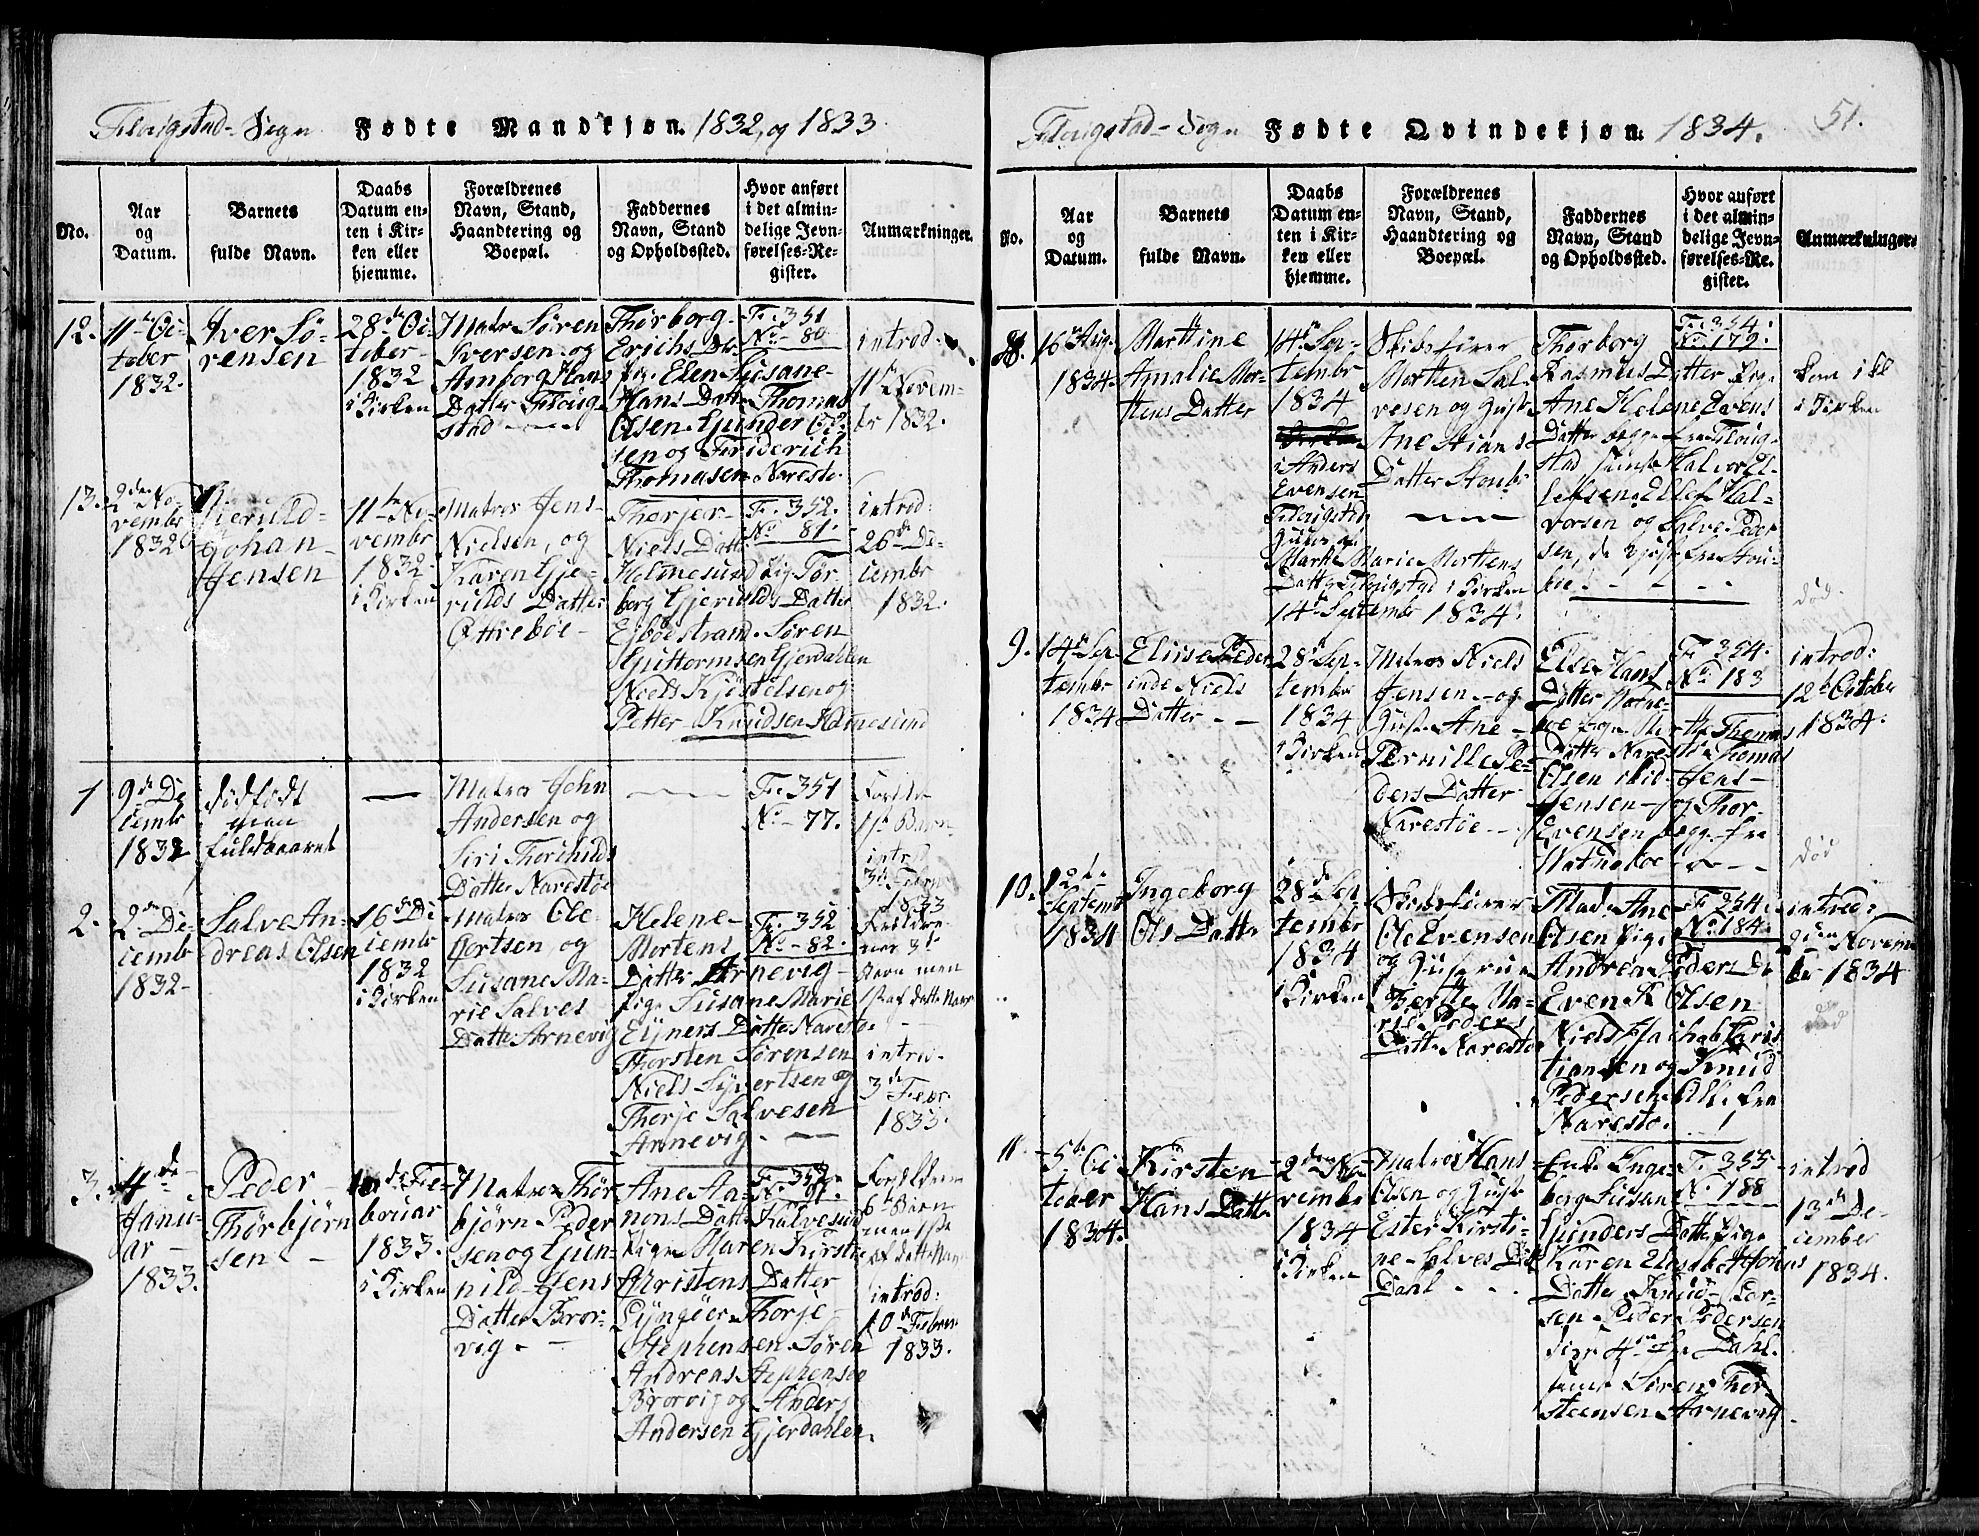 Flougstad-Sogn Fødte Mandkjøn. 1832, og 1833
No.
Aar
og
Datum.
Barnets
fulde Navn.
Daabs
Datum en-
ten i Kir-
ken eller
hjemme.
Forældrenes
Navn, Stand,
Haandtering og
Boepæl.
Faddernes
Navn, Stand
og Opholdssted.
Hvor anført
i det almin-
delige Jevn-
førelses-Re-
gister.
Anmærkninger.
12.
11te Oc-
tober
1832.
Iver Sø-
rensen
28de Oc-
tober
1832
i Kirken
Matr Søren
Iversen og
Amborg Hans
Datter Floug-
stad
Thorborg
Erichs Dtr
Pig. Elen Susane
Hans Datt. Thomas
Olsen Gunder Ol-
sen og Friderich
Thomasen Narestø
Fr. 351
No. 80
introd:
11te Novem-
br 1832.
13.
2den No-
vembr
1832
Gjeruld
Johan
Jensen
11te No-
vembr
1832
i Kirken
Matros Jens
Nielsen, og
Karen Gje-
rulds Datter
Ottreboe
Thorjer
Niels Datt
Holmesund Pig. Tør
borg Gjerulds Datter
Ejboestrand. Søren
Guttormsen Gjerdahlen
Niels Kjøstelsen og
Petter Knudsen Holmesund
Fr. 352.
No. 81.
introd:
26de De-
cembr
1832.
1
9de De
cembr
1832
dødfødt
fuldbaaret
Matros John
Andersen og
Siri Thorchilds
Datter Narestøe
Fr. 351
No. 77.
1ste Barn
introd
3de Febru
1833
2.
2den De-
cembr
1832
Salve An-
dreas Olsen
16de De
cembr
1832
i Kirken
Matros Ole
Gortsen, og
Susane Ma-
rie Salves
Datter Arnevig
Helene
Mortens
Datter Arnevig
Pige Susane Marie
Ejners Datter Narestø.
Thorsten Sørensen
Niels Syvertsen og
Thorje Salvesen
Arnevig.
Fr. 352
No. 82.
Barn men
1ste af dette Navn
introd.
3de Febr.
1833.
3.
4de
Janu-
ar
1833.
Peder
Thorbjørn
sen
10de Fe-
bruar
1833.
i Kirken
Matros Thor
bjørn Peder
sen og Gun-
nild Jens
Datter Bror-
vig.
Ane Aa-
nons Datt Kalvesund
Pige Maren Kirstine
Christens Datter
Lyngøer Thorje
Stephensen Søren
Andreas Stephensen
Brorvig og Anders
Andersen Gjerdahlen.
Fr. 352
No. 91.
Forældrenes
6te Barn
men 1ste
af dette Navn
introd:
10de Februar
1833.
Flougstad-Sogn Fødte Qvindekjøn. 1834. 51.
No.
Aar
og
Datum.
Barnets
fulde Navn.
Daabs
Datum en-
ten i Kir-
ken eller
hjemme.
Forældrenes
Navn, Stand,
Haandtering og
Boepæl.
Faddernes
Navn, Stand
og Opholdssted.
Hvor anført
i det almin-
delige Jevn-
førelses-Re-
gister.
Anmærkninger.
8.
16de Aug.
1834.
Marthine
Amalie Mor-
tens Datter
14de Sep-
tembr
1834
i Anders
Evensen
Flougstad
Marthe Marie Mortens
Datter Flougstad i Kirken
14de Septembr 1834.
Skibsfører
Morthen Sal-
vesen og Hust
Ane Stians
Datter Stoubø
Thorborg
Rasmus Datter Pige
Ane Helene Evens
Datter begge fra Floug-
stad samt Halvor El-
lefsen Ellef Hal-
vorsen og Salve Peder
sen, de 2 sidste fra Stou-
bøe.
Fr. 354.
No. 179.
kom ikke
i Kirken
død.
9.
14de Sep
tembr
1834
Elise Peder
inde Niels
Datter
28de Sep-
tembr
1834
i Kirken
Matros Niels
Jensen og
Hust. Ane
Pernille Pe-
ders Datter
Narestøe
Else Hans
Datter Watne-
boe Pige Marthe Thomas
Datter Narestø Thomas
Olsen ibid Jens
Jensen og Thor
Evensen begge fra
Watneboe
Fr. 354.
No. 183
introd:
12te October
1834.
død
10.
Septembr
1834
Ingeborg
Ols Datter
28de Sep
tembr
1834
i Kirken
Skibsfører
Ole Evensen
og Hustrue
Therthe Ma-
rie Peders
Datter Narestø
Mad. Ane
Olsen Pige
Andrea Peders Dr
Even K Olsen
Niels Jachob Chris
tiensen og Knud
Pedersen Alle fra
Narestø.
Fr. 354.
No. 184.
introd:
9den Novem
br 1834
død
11.
5te Oc
tober
1834.
Kirsten
Hans Datt.
2den No-
vembr
1834
i Kirken
Matros Hans
Olsen og Hust
Ester Kirsti-
ne Salves Datt
Dahl
Enke Inge-
borg Susane
Gunders Datter Pige
Karen Elisabet Johns
Datter Knud Lar-
sen Peder Pedersen
disse 4re fra Dahl.
samt Søren Thor-
steensen Arnevig
Fr. 355
No. 188
introd
13de De-
cember
1834.